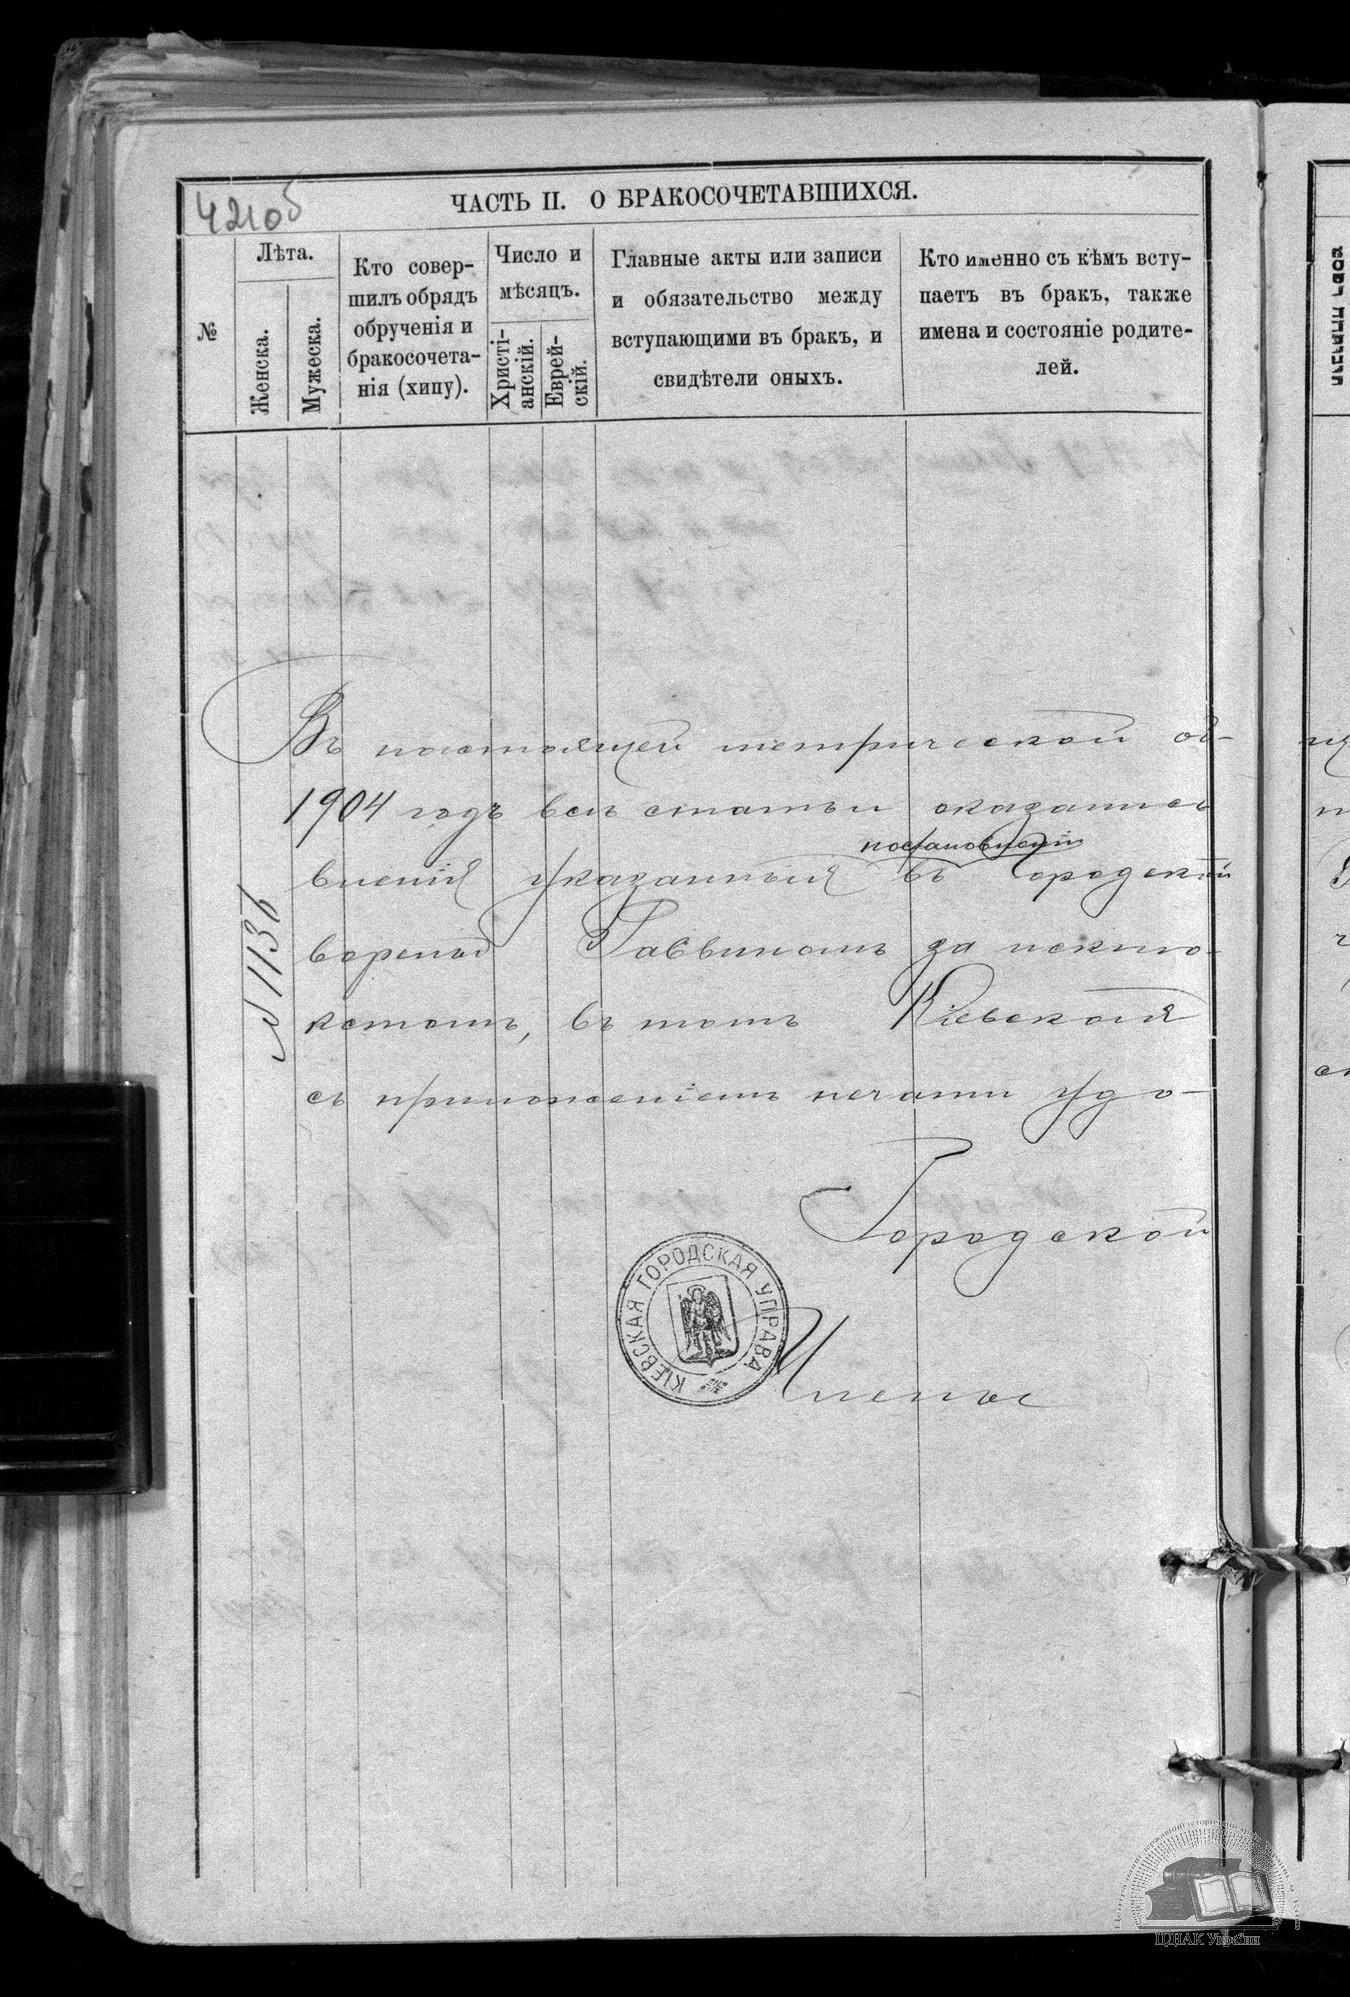 421об
ЧАСТЬ II. О БРАКОСОЧЕТАВШИХСЯ.
№
Лѣта.
Женска.
Мужеска.
Кто совер-
шилъ обрядъ
обрученія и
бракосочета-
нія (хипу).
Число и
мѣсяцъ.
Христі-
анскій.
Еврей-
скій.
Главные акты или записи
и обязательство между
вступающими въ бракъ, и
свидѣтели оныхъ.
Кто именно съ кѣмъ всту-
паетъ въ бракъ, также
имена и состояніе родите-
лей.
Въ настоящей метрической об-
1904 годъ все статьи оказались
постановленіи
вленія указанныя въ Городской
вореный Раввиномъ за исклю-
кетомъ, въ томъ Кіевская
съ приложеніемъ печати удо-
№ 1136
Городской
КІЕВСКАЯ ГОРОДСКАЯ УПРАВА
Члены
ЦДІАК України